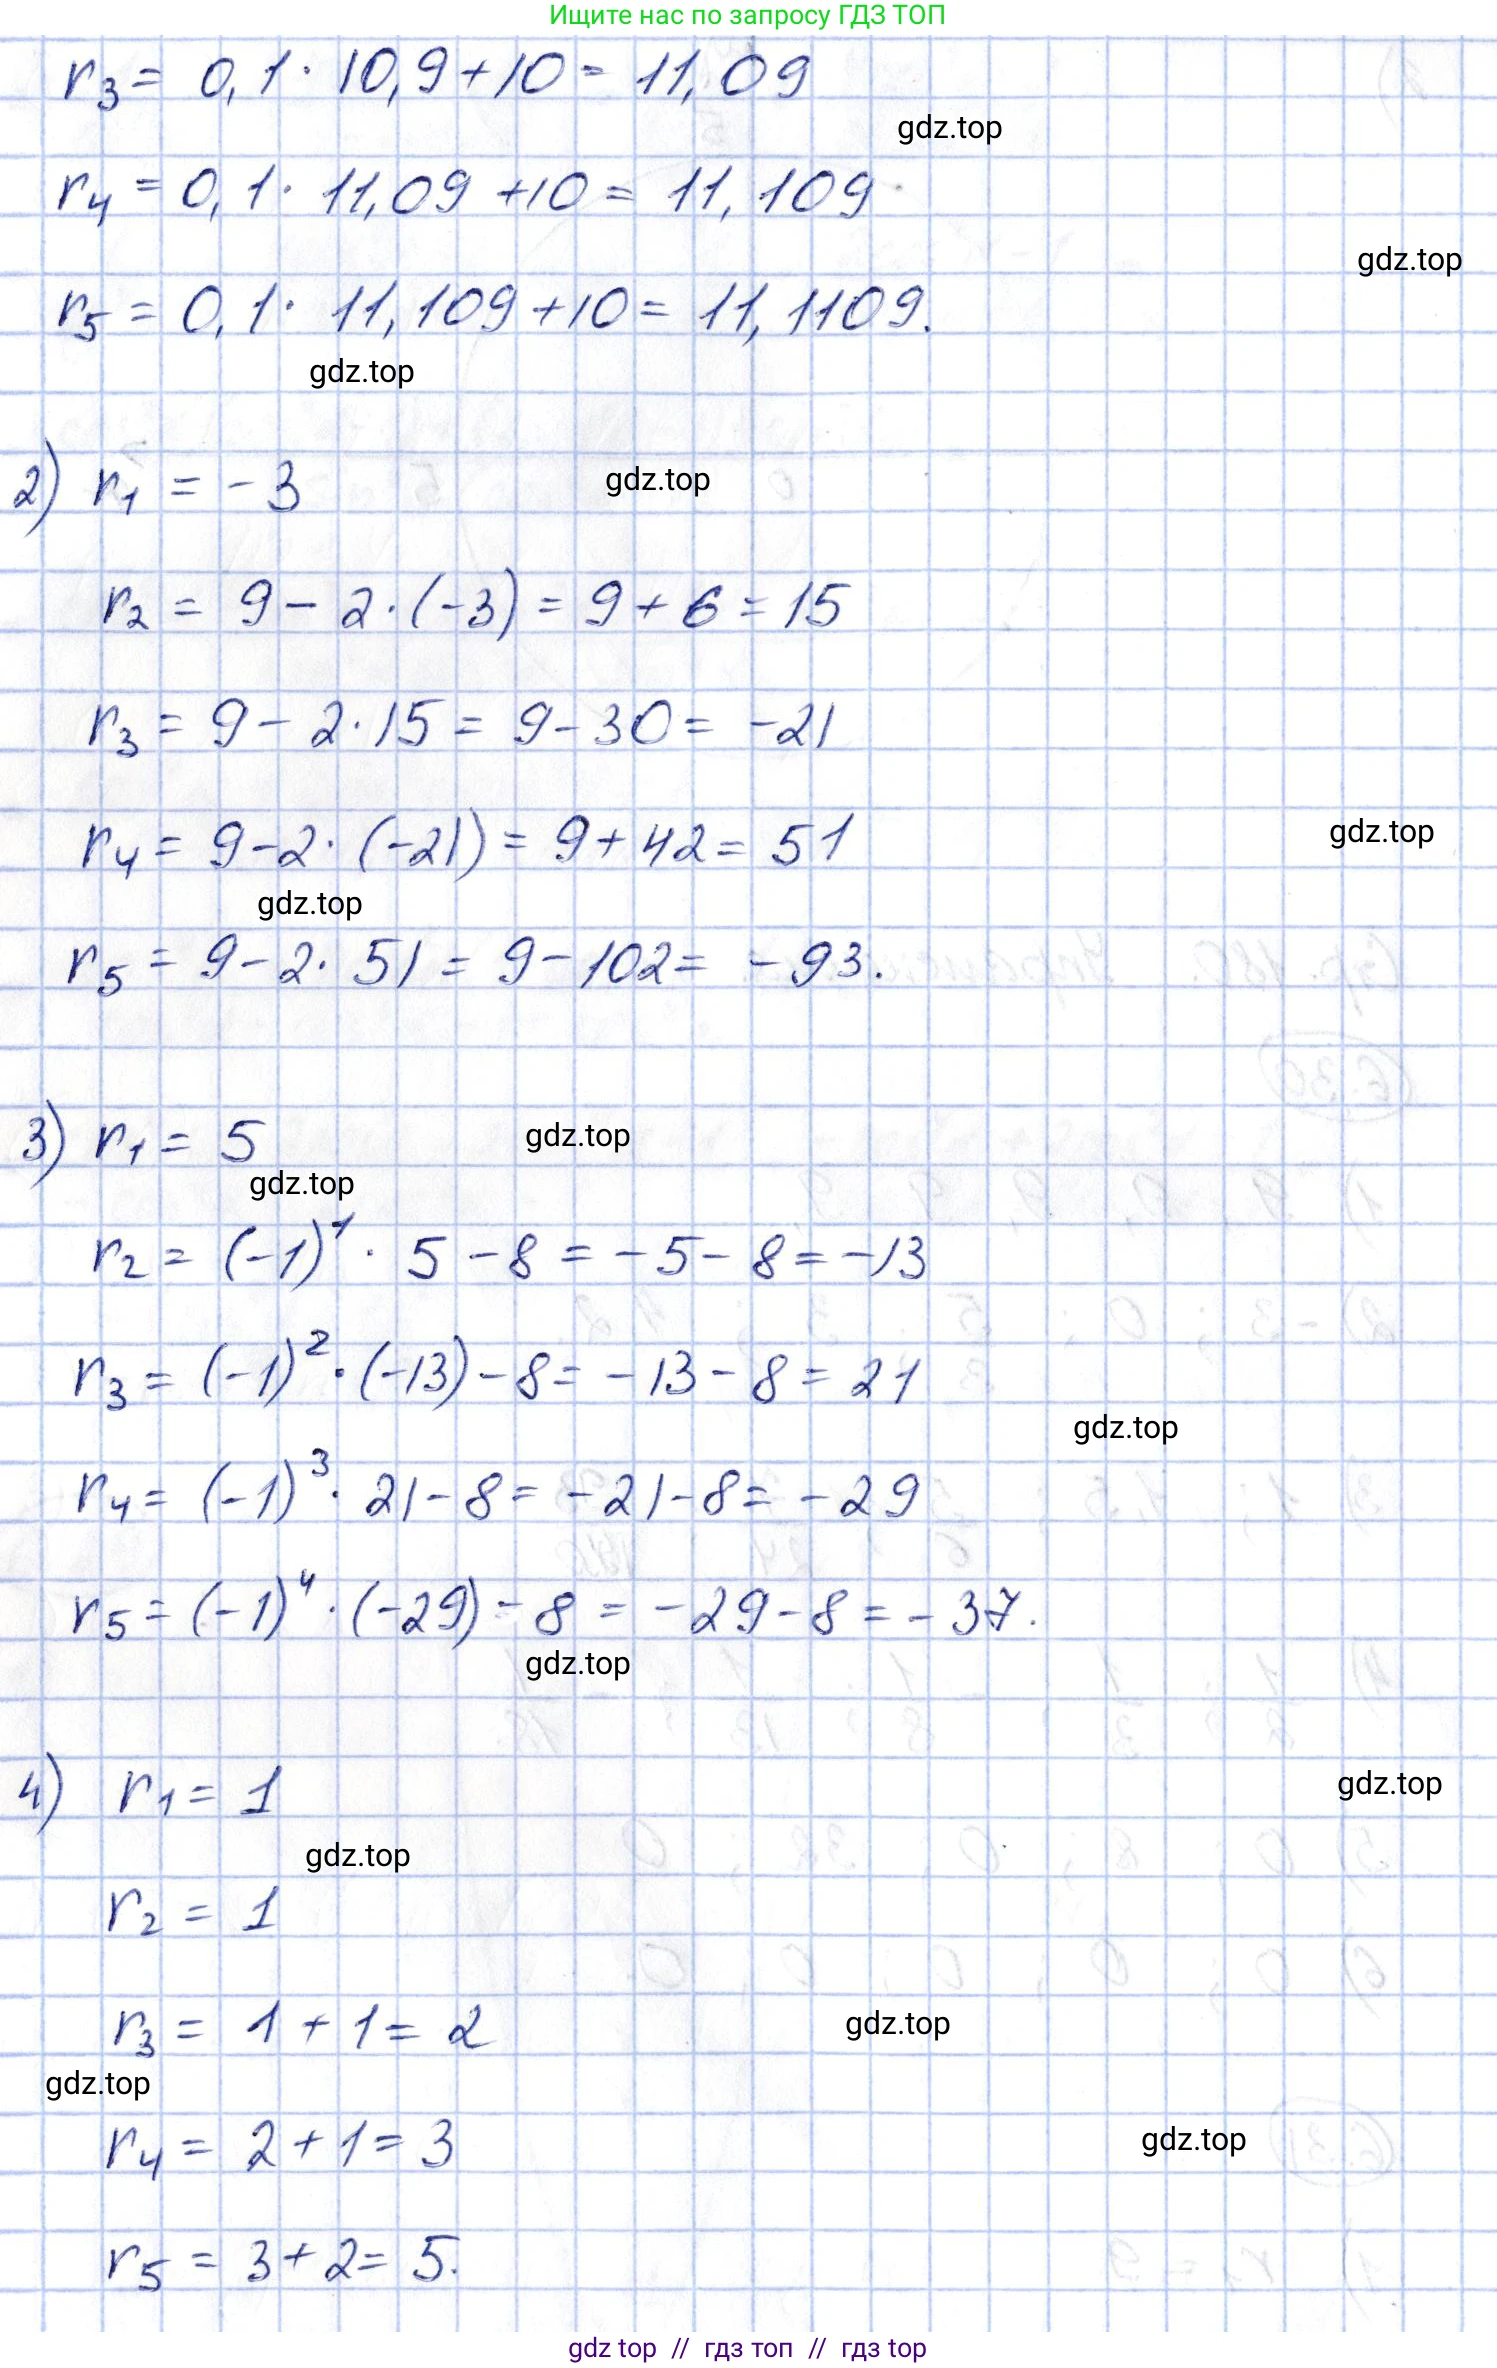 Ищите нас по запросу ГДЗ ТОП
r₃ = 0,1 · 10,9 + 10 = 11,09
gdz.top
r₄ = 0,1 · 11,09 + 10 = 11,109
gdz.top
r₅ = 0,1 · 11,109 + 10 = 11,1109.
gdz.top
2) r₁ = -3
gdz.top
r₂ = 9 - 2 · (-3) = 9 + 6 = 15
r₃ = 9 - 2 · 15 = 9 - 30 = -21
r₄ = 9 - 2 · (-21) = 9 + 42 = 51
gdz.top
gdz.top
r₅ = 9 - 2 · 51 = 9 - 102 = -93.
3) r₁ = 5
gdz.top
gdz.top
r₂ = (-1)¹ · 5 - 8 = -5 - 8 = -13
r₃ = (-1)² · (-13) - 8 = -13 - 8 = 21
gdz.top
r₄ = (-1)³ · 21 - 8 = -21 - 8 = -29
r₅ = (-1)⁴ · (-29) - 8 = -29 - 8 = -37.
gdz.top
4) r₁ = 1
gdz.top
gdz.top
r₂ = 1
r₃ = 1 + 1 = 2
gdz.top
gdz.top
r₄ = 2 + 1 = 3
gdz.top
r₅ = 3 + 2 = 5.
gdz top // гдз топ // гдз top